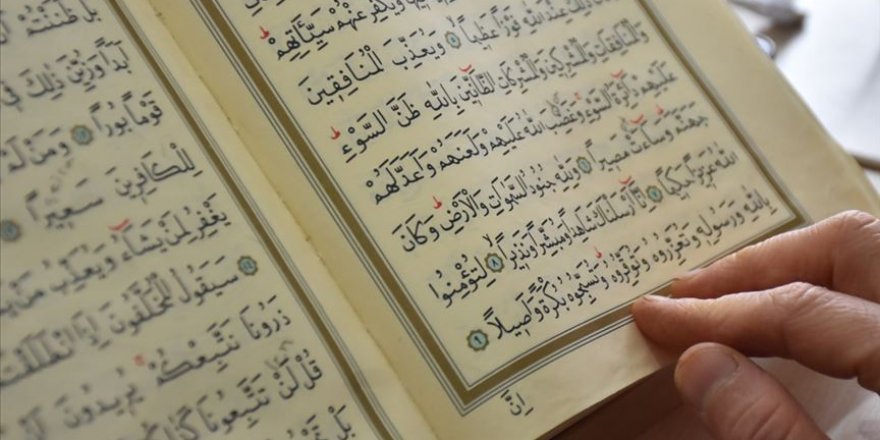 وَيُكَفِّرَ عَنْهُمْ سَيِّئَاتِهِمْ
ذٰلِكَ عِنْدَ اللّٰهِ فَوْزًا عَظِيمًا ٥ وَيُعَذِّبَ الْمُنَافِقِينَ
وَالْمُنَافِقَاتِ وَالْمُشْرِكِينَ وَالْمُشْرِكَاتِ الظَّانِّينَ بِاللّٰهِ ظَنَّ السَّوْءِ
عَلَيْهِمْ دَائِرَةُ السَّوْءِ وَغَضِبَ اللّٰهُ عَلَيْهِمْ وَلَعَنَهُمْ وَاَعَدَّ لَهُمْ
جَهَنَّمَ وَسَاءَتْ مَصِيرًا ٦ وَلِلّٰهِ جُنُودُ السَّمٰوَاتِ وَالْاَرْضِ وَكَانَ
اللّٰهُ عَزِيزًا حَكِيمًا ٧ اِنَّا اَرْسَلْنَاكَ شَاهِدًا وَمُبَشِّرًا وَنَذِيرًا ٨ لِتُؤْمِنُوا
بِاللّٰهِ وَرَسُولِهِ وَتُعَزِّرُوهُ وَتُوَقِّرُوهُ وَتُسَبِّحُوهُ بُكْرَةً وَاَصِيلًا ٩
اِنَّ
بَلْ ظَنَنْتُمْ
اَبَدًا وَزُيِّنَ ذٰلِكَ فِي
قَوْمًا بُورًا ١٢ وَمَنْ لَمْ
لِلْكَافِرِينَ سَعِيرًا ١٣
يَغْفِرُ لِمَنْ يَشَاءُ وَيُعَذِّبُ مَنْ
١٤ سَيَقُولُ الْمُخَلَّفُونَ اِذَا انْطَلَقْتُمْ
ذَرُونَا نَتَّبِعْكُمْ يُرِيدُونَ اَنْ
قُلْ لَنْ تَتَّبِعُونَا
بَلْ